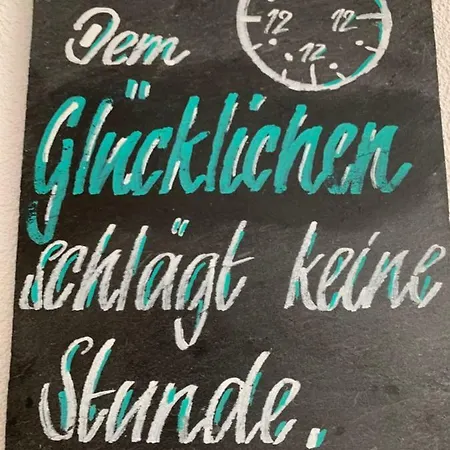 12 12
12
Dem
Glücklichen
schlägt keine
Stunde.